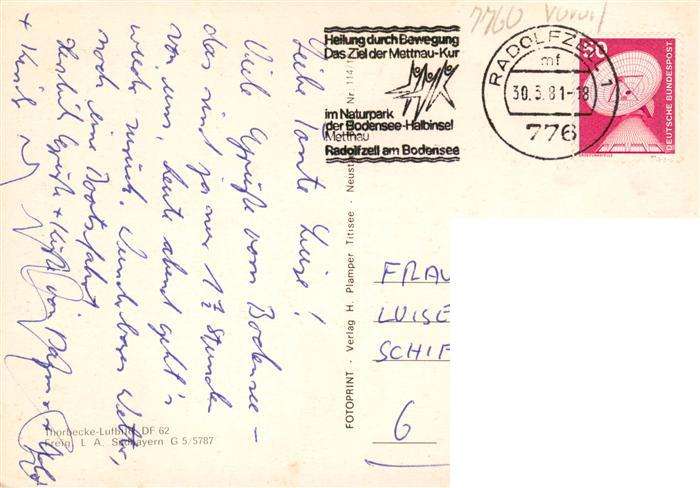 Liebe Tante Luise!
Viele Grüße vom Bodensee –
das sind ja nur 1 ½ Stunden
von uns, heute abend geht's
wieder zurück. Wunderbares Wetter,
noch eine Bootsfahrt
Herzliche Grüße + Küsse von
+ 
Thorbecke-Luftbild DF 62
Freig. L. A. Südbayern G 5/5787
FOTOPRINT · Verlag H. Plamper Titisee · Neust
Nr. 114/1
7760
Heilung durch Bewegung
Das Ziel der Mettnau-Kur
im Naturpark
der Bodensee-Halbinsel
Mettnau
Radolfzell am Bodensee
RADOLFZELL 1
mf
30.5.81-18
776
50
DEUTSCHE BUNDESPOST
FRAU
LUISE
SCHIF
6